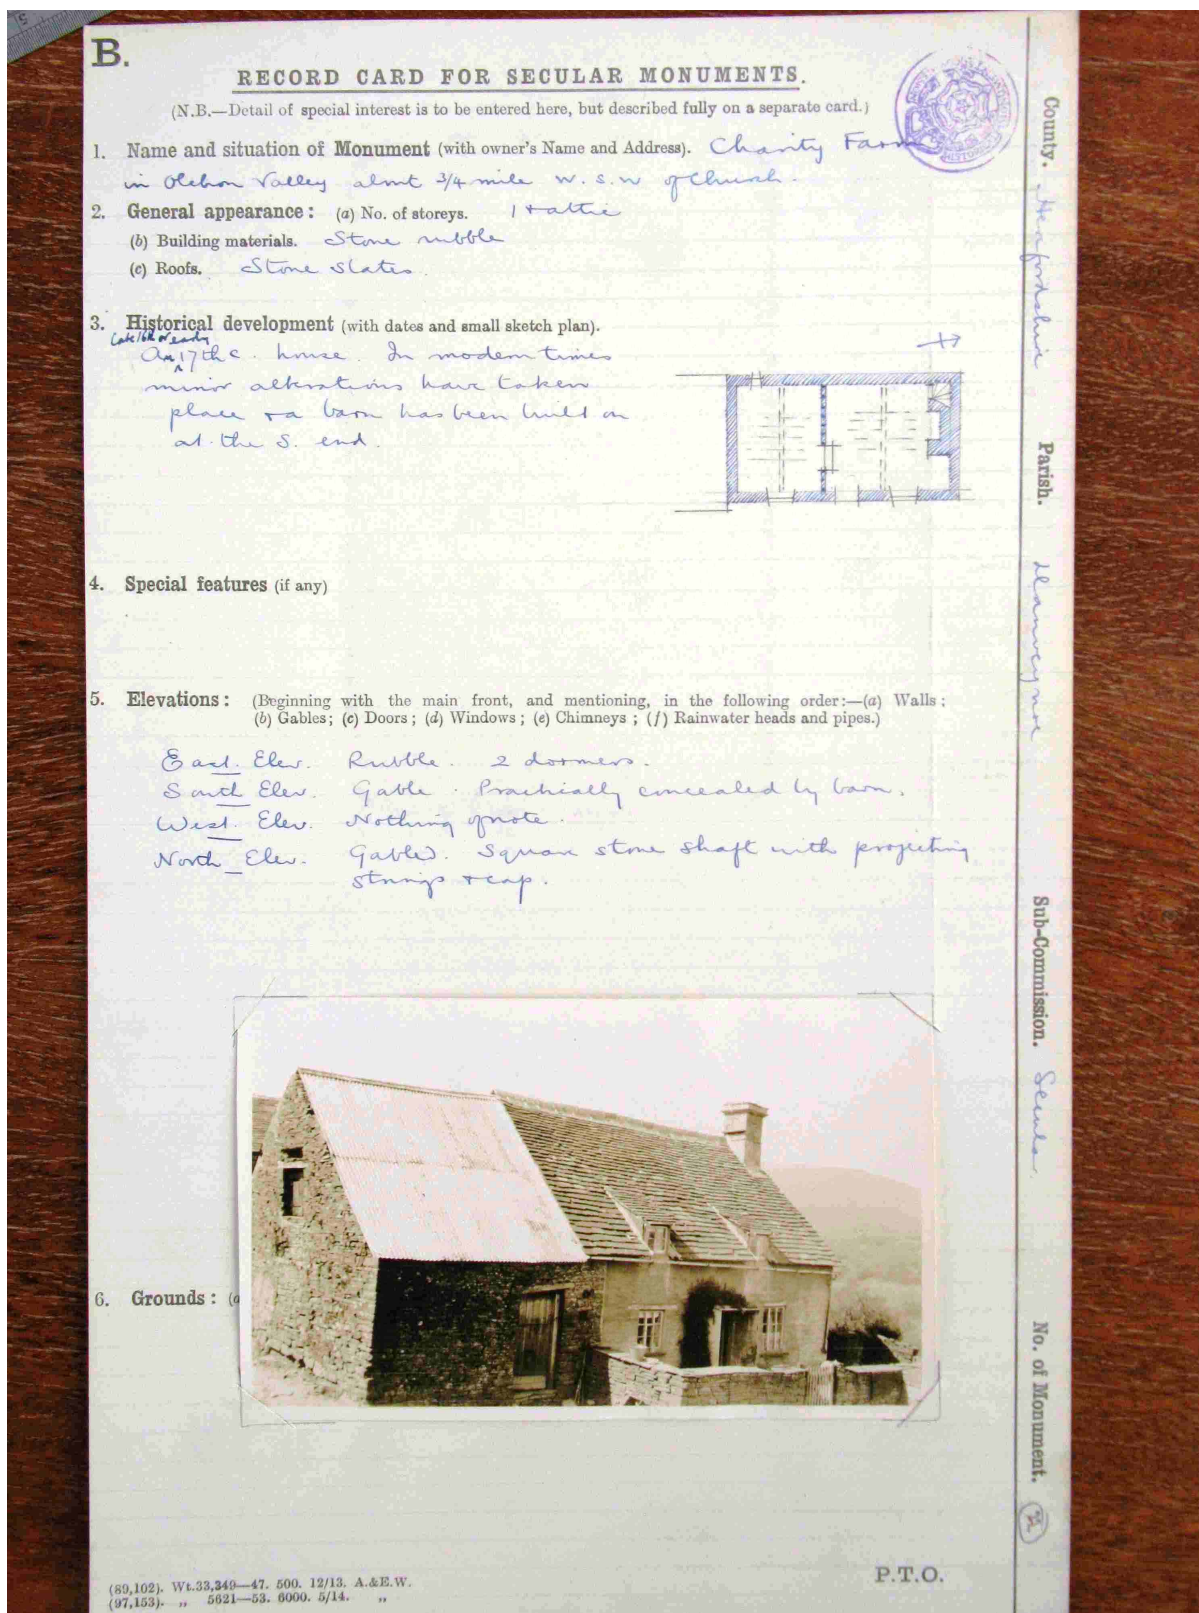 B.
RECORD CARD FOR SECULAR MONUMENTS.
(N.B.—Detail of special interest is to be entered here, but described fully on a separate card.)
1. Name and situation of Monument (with owner's Name and Address). Charity Farm
in Olchon Valley about 3/4 mile W.S.W of Church.
2. General appearance: (a) No. of storeys. 1 + attic
(b) Building materials. Stone rubble
(c) Roofs. Stone slates.
3. Historical development (with dates and small sketch plan).
late 16th or early
An 17th c. house. In modern times
minor alterations have taken
place + a barn has been built on
at the S. end.
4. Special features (if any)
5. Elevations: (Beginning with the main front, and mentioning, in the following order:—(a) Walls;
(b) Gables; (c) Doors; (d) Windows; (e) Chimneys; (f) Rainwater heads and pipes.)
East Elev. Rubble. 2 dormers.
South Elev. Gable. Practically concealed by barn.
West Elev. Nothing of note.
North Elev. Gabled. Square stone shaft with projecting
strings + cap.
6. Grounds: (a
P.T.O.
(89,102). Wt.33,349—47. 500. 12/13. A.&E.W.
(97,153). „ 5621—53. 6000. 5/14. „
County. Herefordshire
Parish. Llanveynoe
Sub-Commission. Secular
No. of Monument.